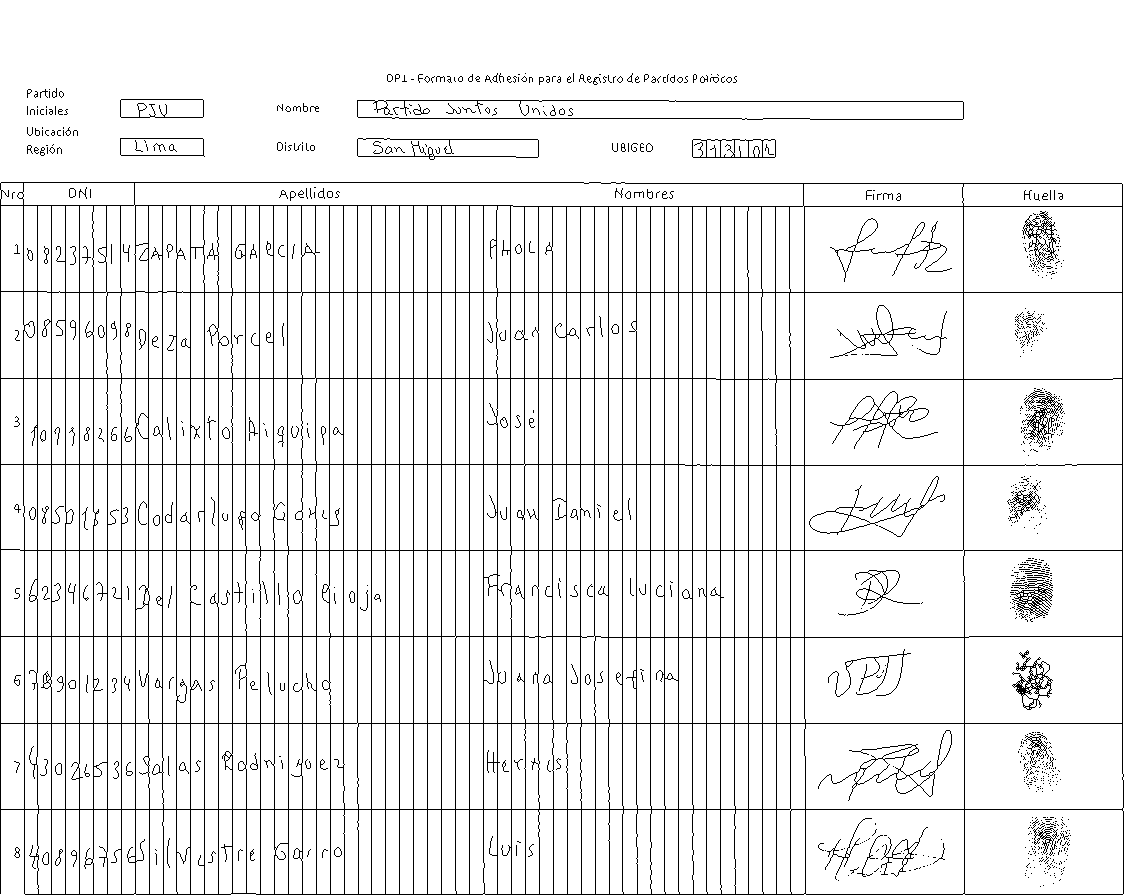 OP1 - Formato de Adhesión para el Registro de Partidos Políticos
Partido
Iniciales PJU Nombre Partido Juntos Unidos
Ubicación
Región Lima Distrito San Miguel UBIGEO
Nro DNI Apellidos Nombres Firma Huella
1 08237514 ZAPATA GARCIA PAOLA
2 08596098 Deza Porcel Juan Carlos
3 10938266 Calixto Aiquipa José
4 08501853 Juan Daniel
5 62346721 Del Castilllo Rioja Francisca Luciana
6 78901234 Vargas Pelucho Juana Josefina
7 43026536 Salas Rodriguez
8 40896756 Silvestre Garro Luis